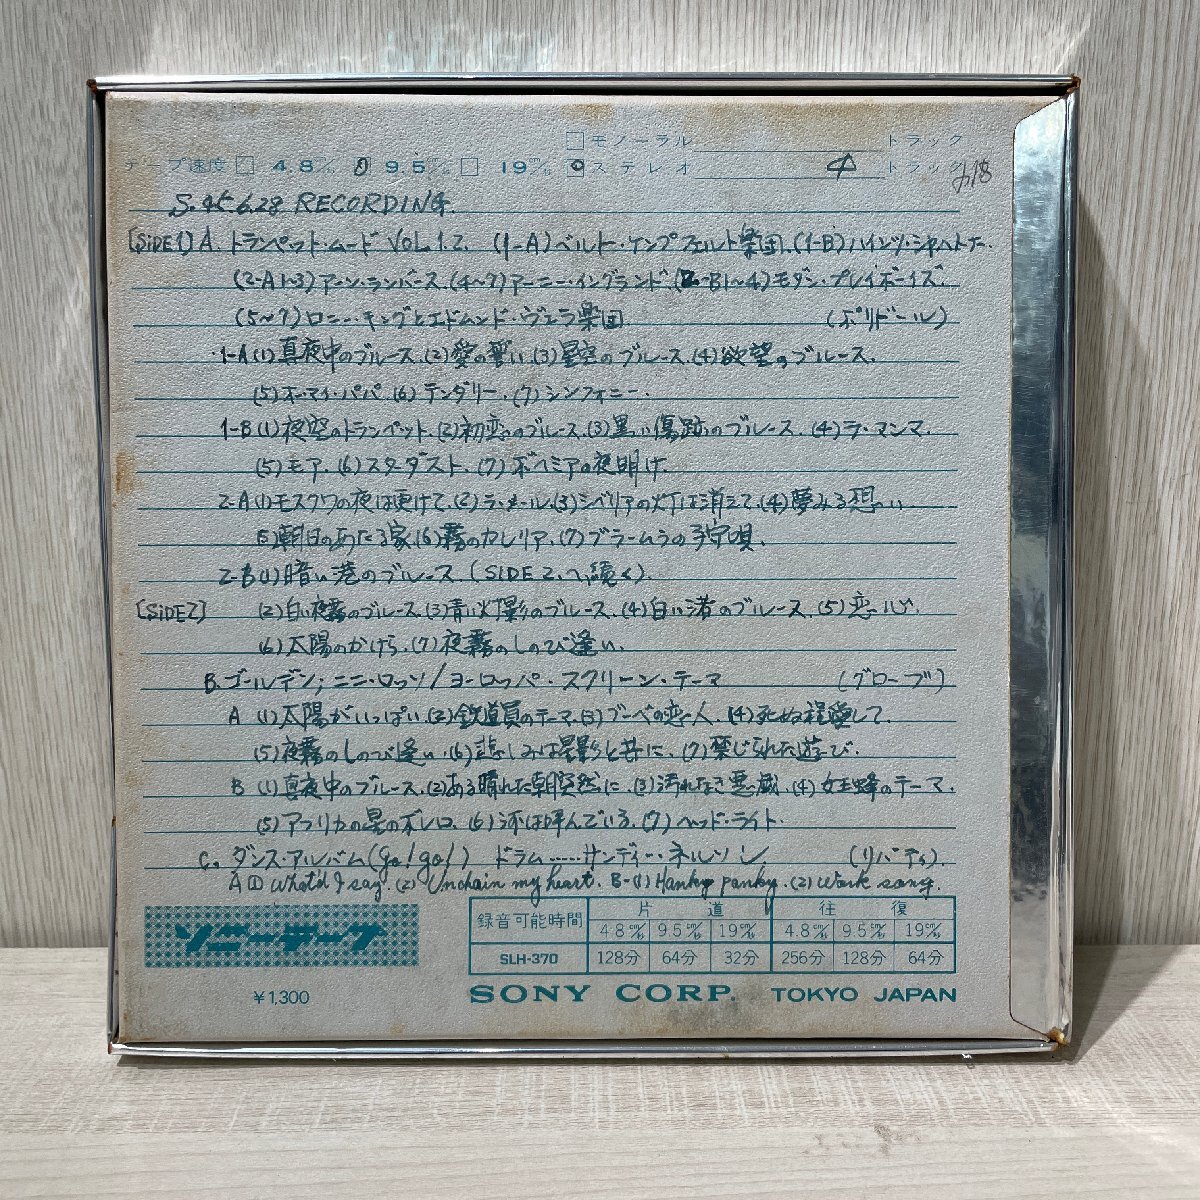 □ モノーラル トラック
テープ速度 □ 4.8 cm/s □ 9.5 cm/s □ 19 cm/s □ ステレオ 4 トラック
S.45.6.28 RECORDING.
[SiDE1] A. トランペット・ムード VOL.1.2. (1-A)ベルト・ケンプフェルト楽団.(1-B)ハインツ・シャハトナー.
(2-A1~3)アーツ・ランバース.(4~7)アーニー・イングランド.(2-B1~4)モダン・プレイボーイズ.
(5~7)ロニー・キングとエドムンド・ヴェラ楽団. (ポリドール)
・1-A(1)真夜中のブルース.(2)愛の誓い.(3)星空のブルース.(4)欲望のブルース.
(5)オー・マイ・パパ.(6)テンダリー.(7)シンフォニー.
1-B(1)夜空のトランペット.(2)初恋のブルース.(3)黒い傷跡のブルース.(4)ラ・マンマ.
(5)モア.(6)スターダスト.(7)ボヘミアの夜明け.
2-A(1)モスクワの夜は更けて.(2)ラ・メール.(3)シベリアの灯は消えて.(4)夢みる想い
(5)朝日のあたる家(6)霧のカレリア.(7)ブラームスの子守唄.
2-B(1)暗い港のブルース(SiDE2.へ続く).
[SiDE2] (2)白い夜霧のブルース.(3)青い灯影のブルース.(4)白い渚のブルース.(5)恋心.
(6)太陽のかけら.(7)夜霧のしのび逢い.
B.ゴールデン;ニニ・ロッソ/ヨーロッパ・スクリーン・テーマ (グローブ)
A (1)太陽がいっぱい(2)鉄道員のテーマ.(3)ブーベの恋人.(4)死ぬ程愛して.
(5)夜霧のしのび逢い.(6)悲しみは星影と共に.(7)禁じられた遊び.
B (1)真夜中のブルース.(2)ある晴れた朝突然に.(3)汚れなき悪戯.(4)女王蜂のテーマ.
(5)アフリカの星のボレロ.(6)河は呼んでいる.(7)ヘッド・ライト.
C. ダンス・アルバム(go!go!) ドラム......サンディー・ネルソン (リバティ).
A(1)What'd I say.(2)Unchain my heart. B-(1)Hanky panky.(2)Work song.
ソニーテープ
録音可能時間 片道 往復
4.8cm/s 9.5cm/s 19cm/s 4.8cm/s 9.5cm/s 19cm/s
SLH-370 128分 64分 32分 256分 128分 64分
¥1,300
SONY CORP. TOKYO JAPAN